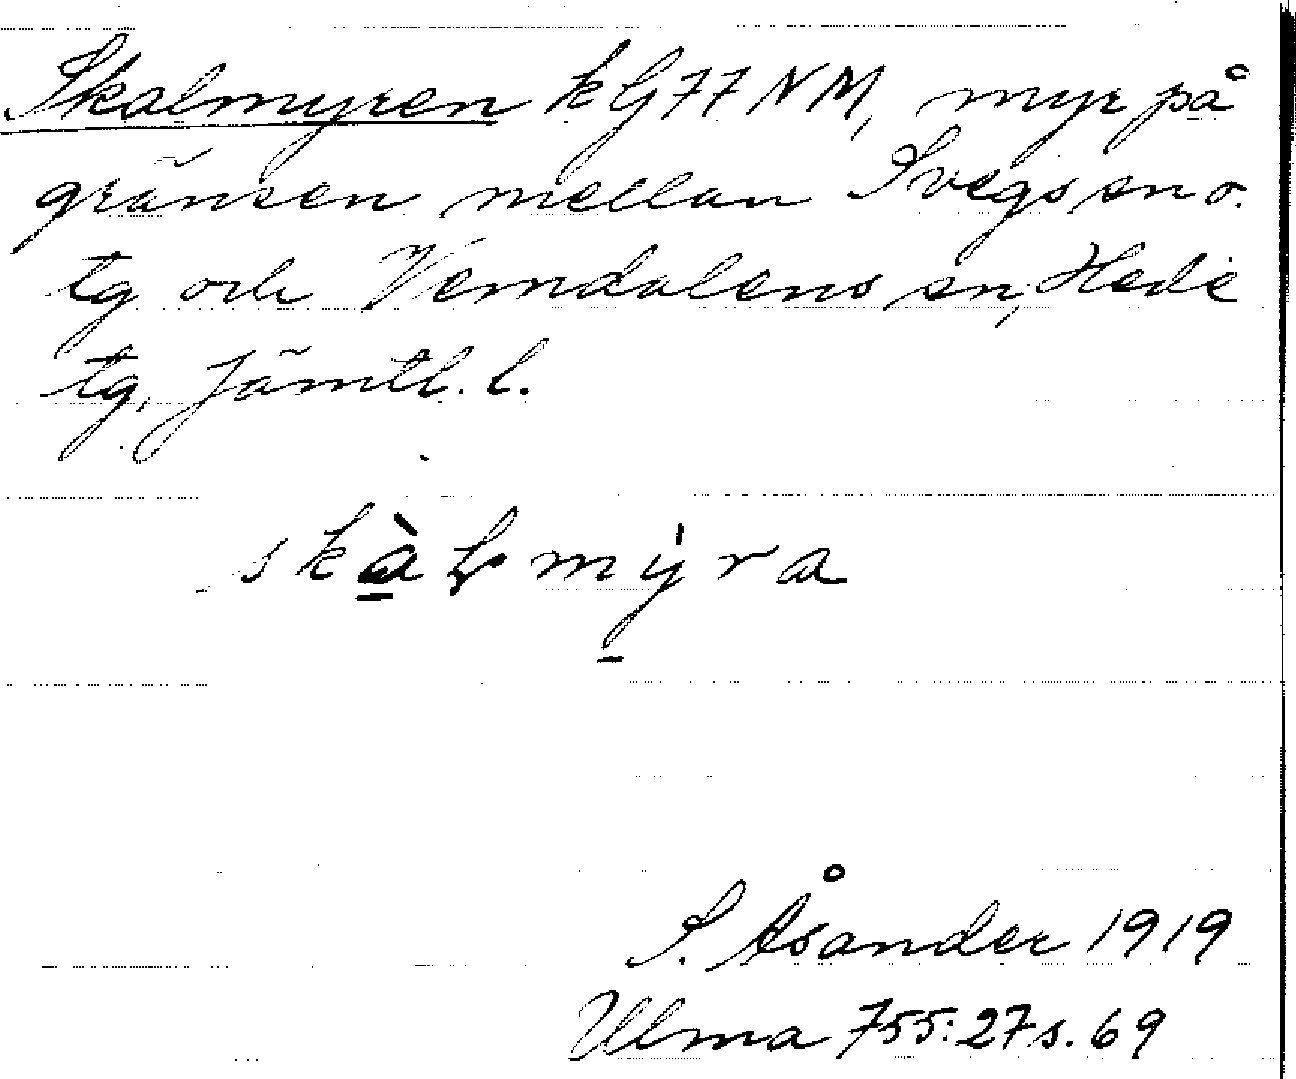 Skalmyren k G 77 NM, myr på
gränsen mellan Svegs sn o.
tg och Vemdalens sn, Hede
tg, Jämtl. l.
skàḷmýra
S. Åsander 1919
Ulma 755:27 s. 69